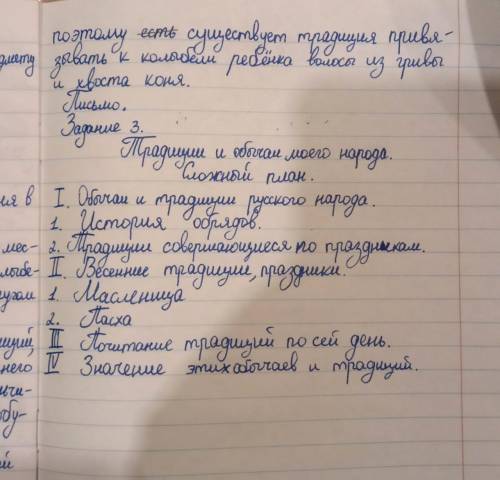 поэтому ~~есть~~ существует традиция привя-
зывать к колыбели ребёнка волосы из гривы
и хвоста коня.
Письмо.
Задание 3.
Традиции и обычаи моего народа.
Сложный план.
I. Обычаи и традиции русского народа.
1. История обрядов.
2. Традиции совершающиеся по праздникам.
II. Весенние традиции, праздники.
1. Масленица
2. Пасха
III Почитание традиций по сей день.
IV Значение этих обычаев и традиций.